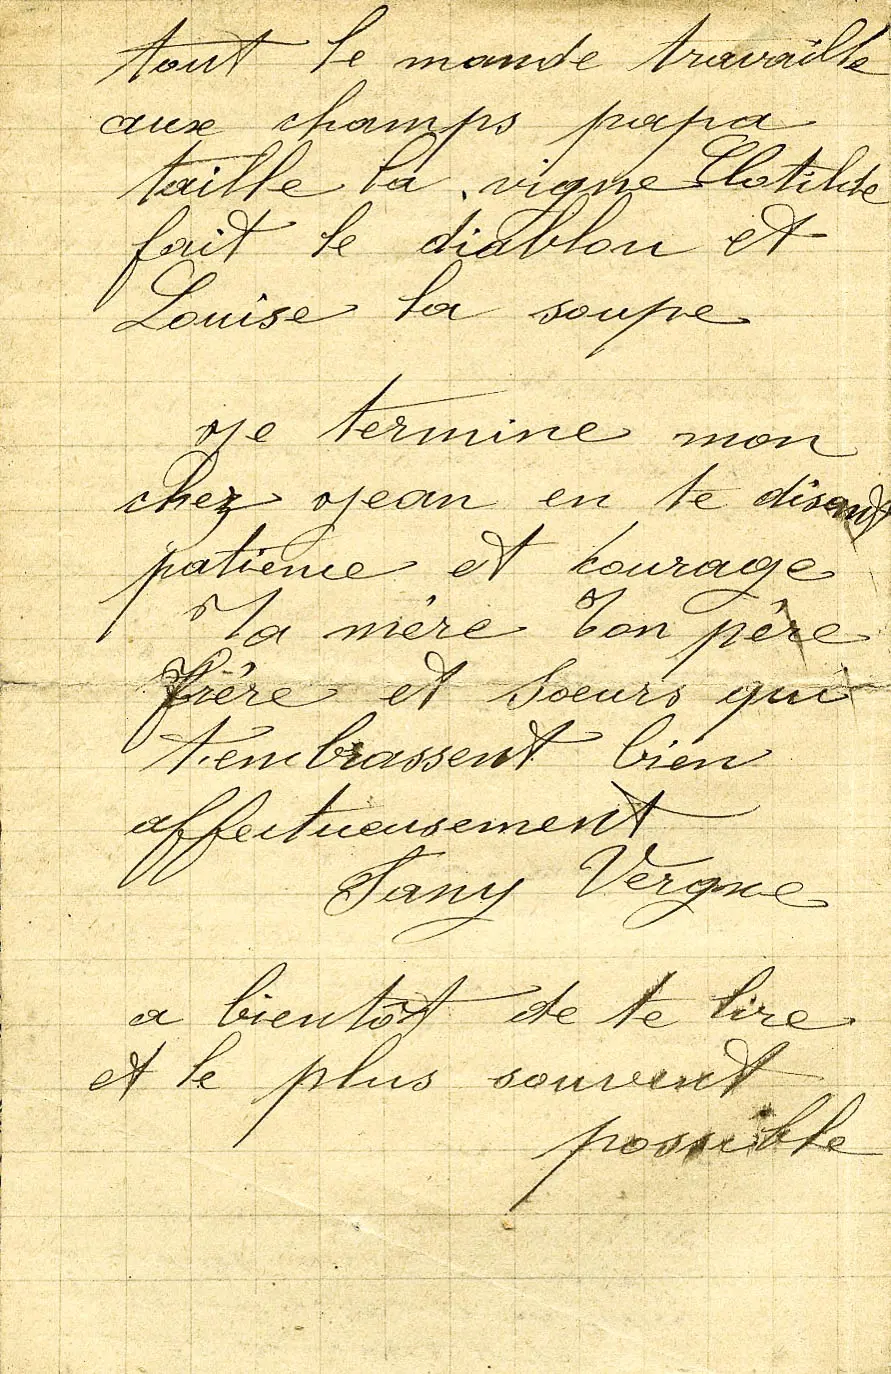 tout le monde travaille
aux champs papa
taille la vigne Clotilde
fait le diablou et
Louise la soupe
je termine mon
cher jean en te disant
patience et courage
Ta mère Ton père
frère et soeurs qui
t'embrassent bien
affectueusement
Fany Vergne
a bientôt de te lire
et le plus souvent
possible